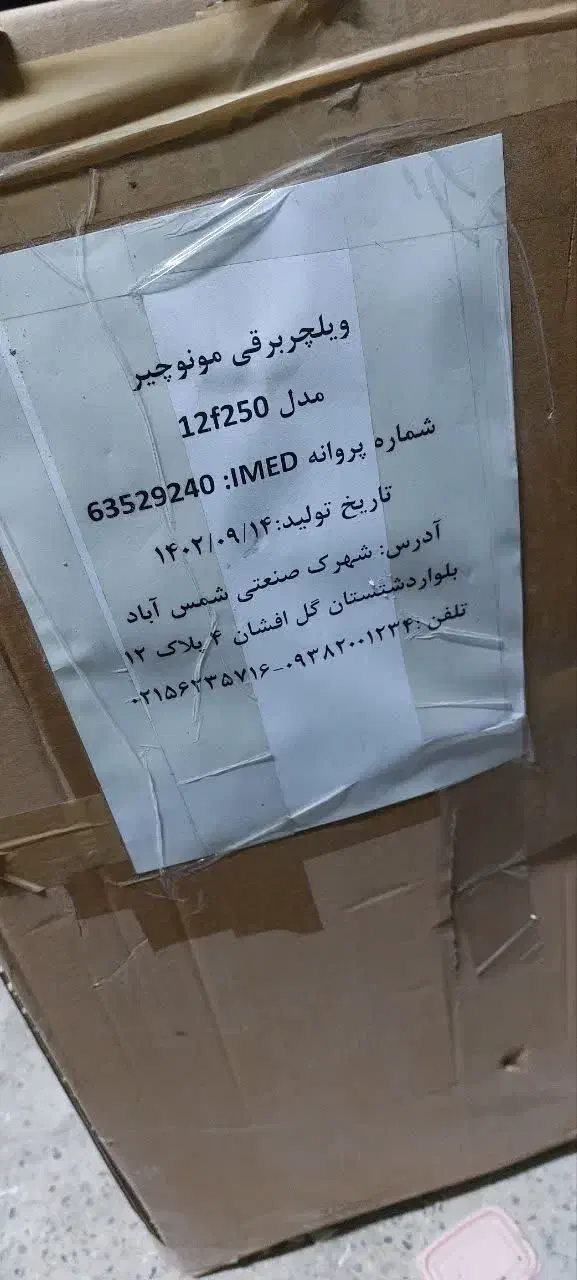 ویلچربرقی مونوچیر
مدل 12f250
شماره پروانه IMED: 63529240
تاریخ تولید:۱۴۰۲/۰۹/۱۴
آدرس: شهرک صنعتی شمس آباد
بلواردشتستان گل افشان ۴ پلاک ۱۲
تلفن :۰۹۳۸۲۰۰۱۲۳۴-۰۲۱۵۶۲۳۵۷۱۶